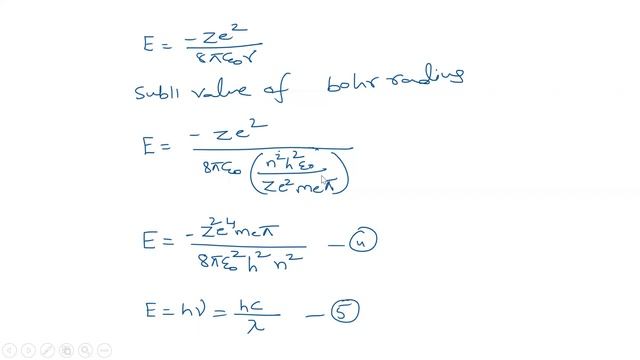 E = -Ze²/8πε₀r
Subll value of bohr radius
E = -Ze²/8πε₀(n²h²ε₀/Ze²meπ)
E = -Z²e⁴meπ/8πε₀²h²n² — ④
E = hν = hc/λ — ⑤